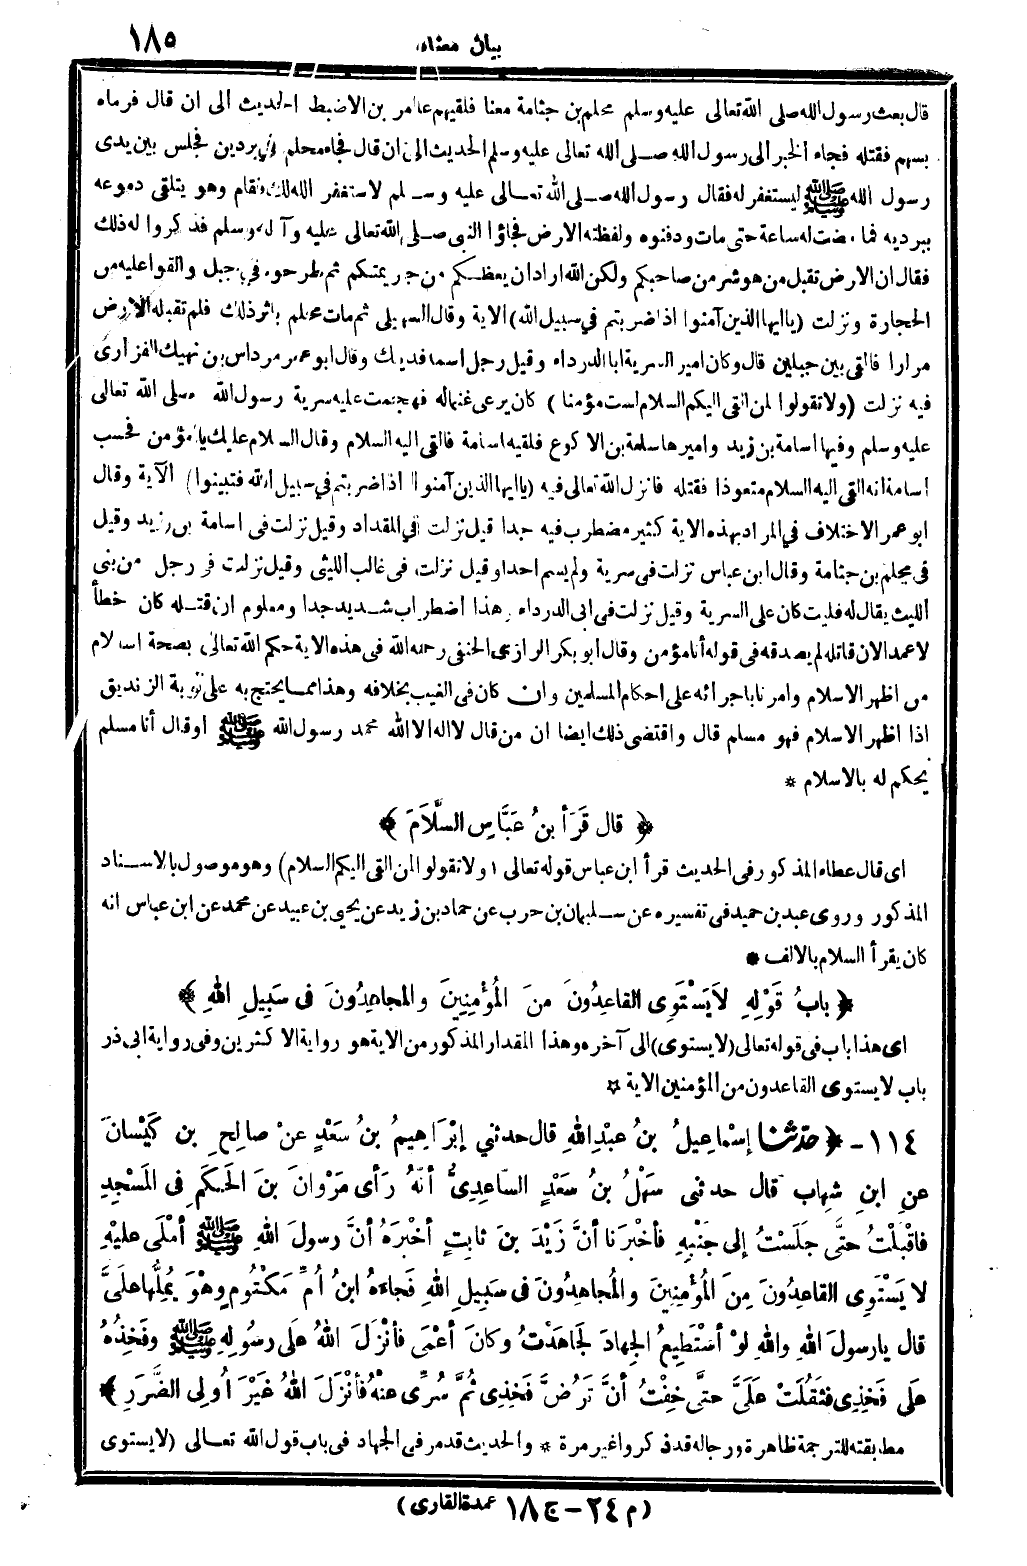 بيان معناه
١٨٥
قال بعث رسول الله صلى الله تعالى عليه وسلم محلم بن جثامة معنا فلقيهم عامر بن الاضبط الحديث الى ان قال فرماه
بسهم فقتله فجاء الخبر الى رسول الله صلى الله تعالى عليه وسلم الحديث الى ان قال فجاء محلم في بردين فجلس بين يدى
رسول الله ﷺ ليستغفر له فقال رسول الله صلى الله تعالى عليه وسلم لا ستغفر الله لك فقام وهو يتلقى دموعه
ببرديه فما مضت له ساعة حتى مات ودفنوه ولفظته الارض فجاؤا النبى صلى الله تعالى عليه وآله وسلم فذكروا له ذلك
فقال ان الارض تقبل من هو شر من صاحبكم ولكن الله اراد ان يعظكم من جريمتكم ثم طرحوه في جبل والقوا عليه من
الحجارة ونزلت (يا ايها الذين آمنوا اذا ضربتم في سبيل الله) الاية وقال السهيلى ثم مات محلم باثر ذلك فلم تقبله الارض
مرارا فالقى بين جبلين قال وكان امير السرية ابا الدرداء وقيل رجل اسمه فديك وقال ابو عمر مرداس بن نهيك الفزارى
فيه نزلت (ولا تقولوا لمن القى اليكم السلام لست مؤمنا) كان يرعى غنما له فهجمت عليه سرية رسول الله صلى الله تعالى
عليه وسلم وفيها اسامة بن زيد واميرها سلمة بن الاكوع فلقيه اسامة فالقى اليه السلام وقال السلام عليك يا مؤمن فحسب
اسامة انه القى اليه السلام متعوذا فقتله فانزل الله تعالى فيه (يا ايها الذين آمنوا اذا ضربتم في سبيل الله فتبينوا) الآية وقال
ابو عمر الاختلاف في المراد بهذه الاية كثير مضطرب فيه جدا قيل نزلت في المقداد وقيل نزلت فى اسامة بن زيد وقيل
فى محلم بن جثامة وقال ابن عباس نزلت فى سرية ولم يسم احدا وقيل نزلت فى غالب الليثى وقيل نزلت في رجل من بنى
الليث يقال له فليت كان على السرية وقيل نزلت فى ابى الدرداء وهذا اضطراب شديد جدا ومعلوم ان قتله كان خطأ
لا عمدا لان قاتله لم يصدقه فى قوله أنا مؤمن وقال ابو بكر الرازى الحنفى رحمه الله فى هذه الاية حكم الله تعالى بصحة اسلام
من اظهر الاسلام وامرنا باجرائه على احكام المسلمين وان كان فى الغيب بخلافه وهذا مما يحتج به على توبة الزنديق
اذا اظهر الاسلام فهو مسلم قال واقتضى ذلك ايضا ان من قال لا اله الا الله محمد رسول الله ﷺ او قال أنا مسلم
يحكم له بالاسلام *
﴿ قال قَرَأَ بنُ عَبَّاسٍ السَّلَامَ ﴾
اى قال عطاء المذكور فى الحديث قرأ ابن عباس قوله تعالى (ولا تقولوا لمن القى اليكم السلام) وهو موصول بالاسناد
المذكور وروى عبد بن حميد فى تفسيره عن سليمان بن حرب عن حماد بن زيد عن يحيى بن عبيد عن محمد عن ابن عباس انه
كان يقرأ السلام بالالف *
﴿ بابُ قَوْلِهِ لاَ يَسْتَوِى القاعِدُونَ مِنَ المُؤْمِنِينَ والمُجاهِدُونَ فى سَبِيلِ اللهِ ﴾
اى هذا باب فى قوله تعالى (لا يستوى) الى آخره وهذا المقدار المذكور من الاية هو رواية الاكثرين وفى رواية ابى ذر
باب لا يستوى القاعدون من المؤمنين الاية *
١١٤ - ﴿ حدثنا إسْماعِيلُ بنُ عبْدِ اللهِ قال حدثني إبْرَاهِيمُ بنُ سَعْدٍ عنْ صالحِ بنِ كَيْسانَ
عنِ ابنِ شِهابٍ قال حدثنى سَهْلُ بنُ سَعْدٍ السَّاعِدِىُّ أنّهُ رَأى مَرْوَانَ بنَ الحَكَمِ فى المَسْجِدِ
فأقْبَلْتُ حتَّى جَلَسْتُ إلى جَنْبِهِ فأخْبَرَنا أنَّ زَيْدَ بنَ ثابِتٍ أخْبَرَهُ أنَّ رسولَ اللهِ ﷺ أمْلَى عليْهِ
لا يَسْتَوِى القاعِدُونَ مِنَ المُؤْمِنِينَ والمُجاهِدُونَ فى سَبِيلِ اللهِ فَجاءَهُ ابنُ أُمِّ مَكْتُومٍ وهْوَ يُمِلُّها علَىَّ
قال يا رسولَ اللهِ واللهِ لوْ أسْتَطِيعُ الجِهادَ لَجاهَدْتُ وكانَ أعْمَى فأنْزَلَ اللهُ على رسُولِهِ ﷺ وفَخِذُهُ
علَى فَخِذِى فثَقُلَتْ علَىَّ حتَّى خِفْتُ أنَّ تَرُضَّ فَخِذِى ثُمَّ سُرِّىَ عنْهُ فأنْزَلَ اللهُ غَيْرَ أُولِى الضَّرَرِ ﴾
مطابقته للترجمة ظاهرة ورجاله قد ذكروا غير مرة * والحديث قد مر فى الجهاد فى باب قول الله تعالى (لا يستوى
(م ٢٤ - ج ١٨ عمدة القارى)